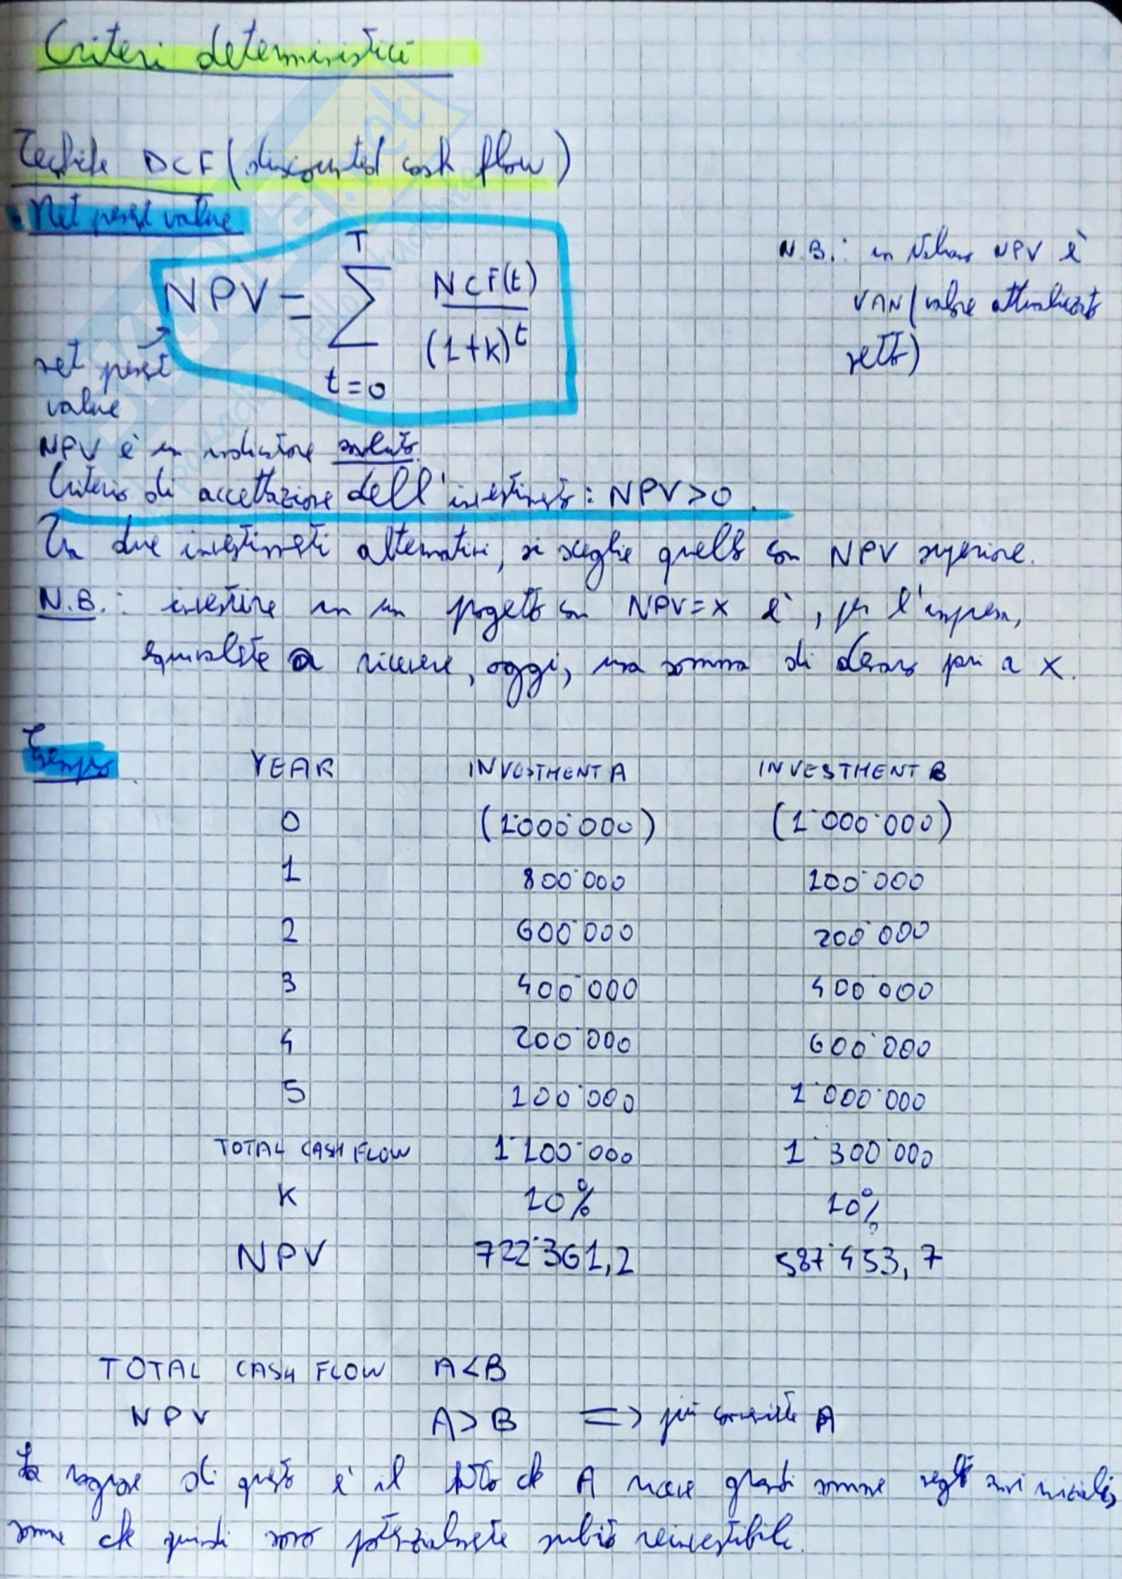 Criteri deterministici
Tecniche DCF (discounted cash flow)
Net present value
NPV = T ∑ t=0 NCF(t) / (1+k)^t
N.B.: in italiano NPV è
VAN (valore attualizzato
netto)
net present
value
NPV è un indicatore assoluto.
Criterio di accettazione dell'investimento: NPV>0.
Tra due investimenti alternativi, si sceglie quello con NPV superiore.
N.B.: investire in un progetto con NPV=x è, per l'impresa,
equivalente a ricevere, oggi, una somma di denaro pari a x.
Esempio
YEAR INVESTMENT A INVESTMENT B
0 (1'000'000) (1'000'000)
1 800'000 100'000
2 600'000 200'000
3 400'000 400'000
4 200'000 600'000
5 100'000 1'000'000
TOTAL CASH FLOW 1'100'000 1'300'000
K 10% 10%
NPV 722'361,2 587'453,7
TOTAL CASH FLOW A<B
NPV A>B => più conveniente A
La ragione di questo è il fatto che A riceve grandi somme negli anni iniziali,
somme che quindi sono potenzialmente subito reinvestibili.